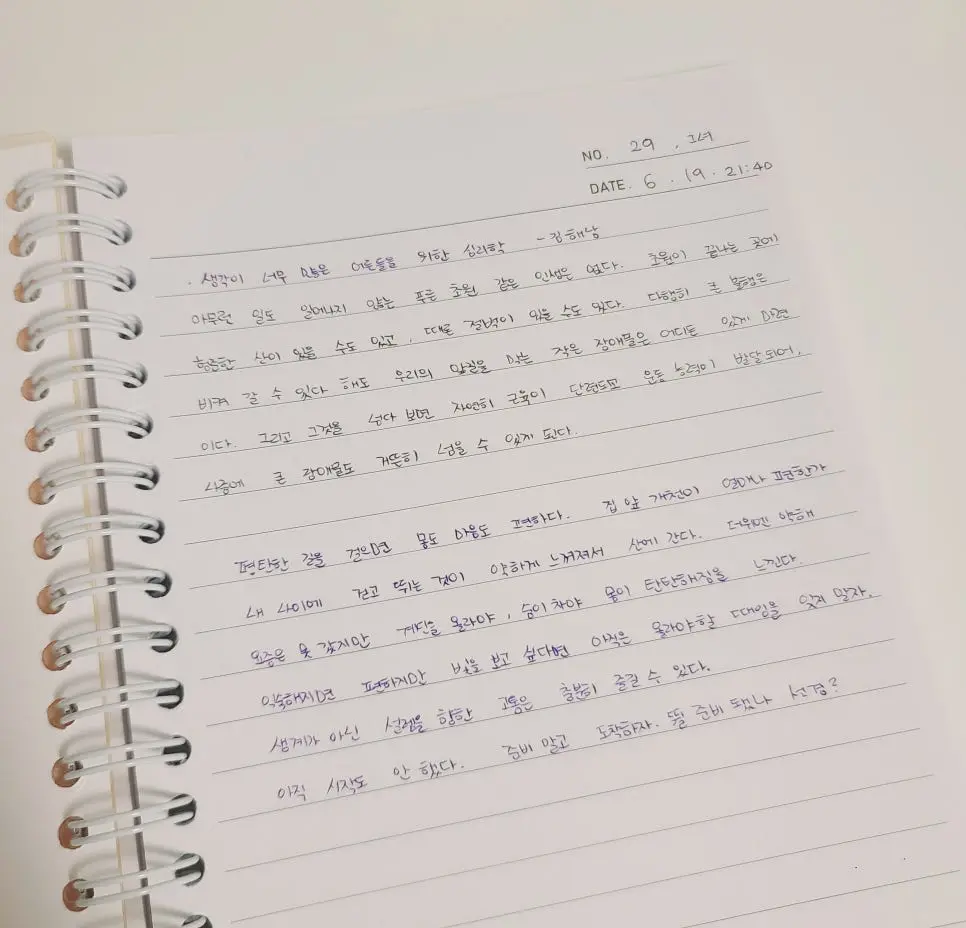 NO. 29. 그녀
DATE. 6. 19. 21:40
· 생각이 너무 많은 어른들을 위한 심리학 - 김혜남
아무런 일도 일어나지 않는 푸른 초원 같은 인생은 없다. 초원이 끝나는 곳에
험준한 산이 있을 수도 있고, 때로 절벽이 있을 수도 있다. 다행히 큰 불행은
비켜 갈 수 있다 해도 우리의 앞길을 막는 작은 장애물은 어디든 있게 마련
이다. 그리고 그것을 넘다 보면 자연히 근육이 단련되고 운동 능력이 발달되어,
나중에 큰 장애물도 거뜬히 넘을 수 있게 된다.
평탄한 길을 걸으면 몸도 마음도 편하다. 집 앞 개천이 얼마나 편한가
내 나이에 걷고 뛰는 것이 약하게 느껴져서 산에 간다. 더위엔 약해
요즘은 못 갔지만 계단을 올라야, 숨이 차야 몸이 탄탄해짐을 느낀다.
익숙해지면 편하지만 빛을 보고 싶다면 아직은 올라야할 때임을 잊지 말자.
생계가 아닌 설렘을 향한 고통은 충분히 즐길 수 있다.
아직 시작도 안 했다. 준비 말고 도착하자. 뛸 준비 됐나 선경?